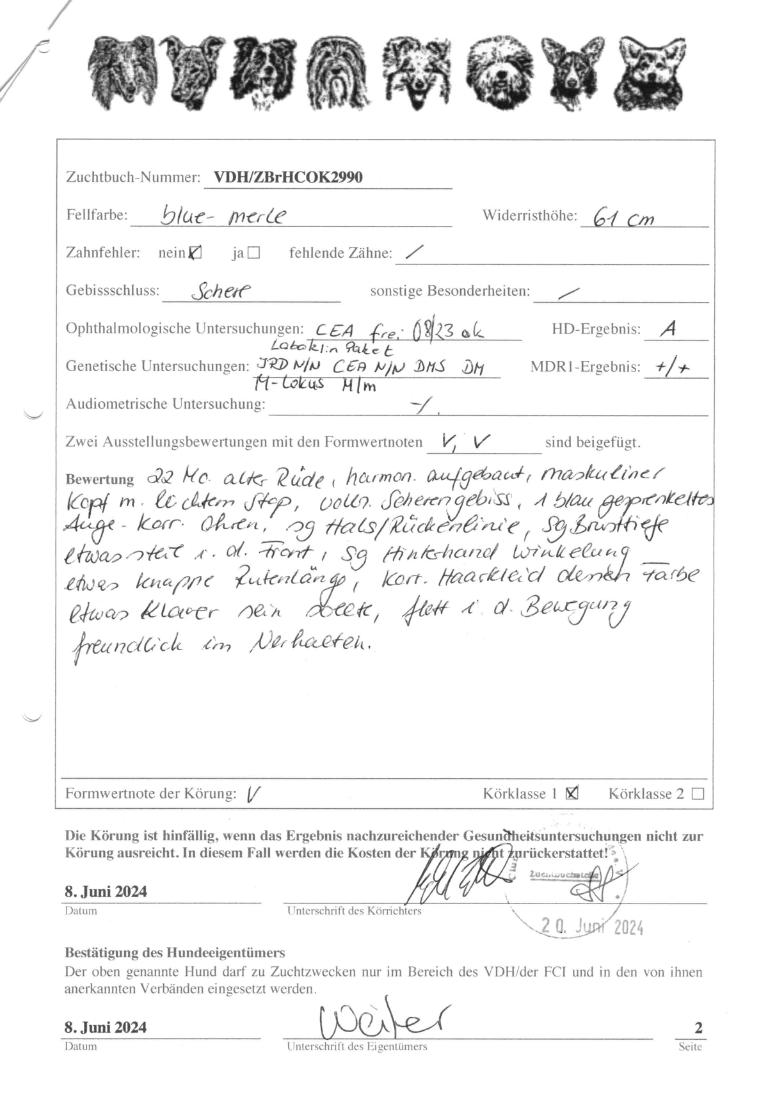 Zuchtbuch-Nummer: VDH/ZBrHCOK2990
Fellfarbe: blue-merle Widerristhöhe: 61 cm
Zahnfehler: nein ☒ ja ☐ fehlende Zähne: /
Gebissschluss: Schere sonstige Besonderheiten: /
Ophthalmologische Untersuchungen: CEA frei 08/23 ok HD-Ergebnis: A
Laboklin Paket
Genetische Untersuchungen: JRD N/N CEA N/N DMS DM MDR1-Ergebnis: +/+
M-Lokus M/m
Audiometrische Untersuchung: -/.
Zwei Ausstellungsbewertungen mit den Formwertnoten V, V sind beigefügt.
Bewertung 22 Mo. alter Rüde, harmon. aufgebaut, maskuliner
Kopf m. leichtem Stop, vollz. Scherengebiss, 1 blau gesprenkeltes
Auge - korr. Ohren, sg Hals/Rückenlinie, sg Brusttiefe
etwas steil i. d. Front, sg Hinterhand winkelung
etwas knappe Rutenlänge, korr. Haarkleid dessen Farbe
etwas klarer sein sollte, flott i. d. Bewegung
freundlich im Verhalten.
Formwertnote der Körung: V Körklasse 1 ☒ Körklasse 2 ☐
Die Körung ist hinfällig, wenn das Ergebnis nachzureichender Gesundheitsuntersuchungen nicht zur
Körung ausreicht. In diesem Fall werden die Kosten der Körung nicht zurückerstattet!
8. Juni 2024
Datum Unterschrift des Körrichters
20. Juni 2024
Bestätigung des Hundeeigentümers
Der oben genannte Hund darf zu Zuchtzwecken nur im Bereich des VDH/der FCI und in den von ihnen
anerkannten Verbänden eingesetzt werden.
8. Juni 2024 2
Datum Unterschrift des Eigentümers Seite